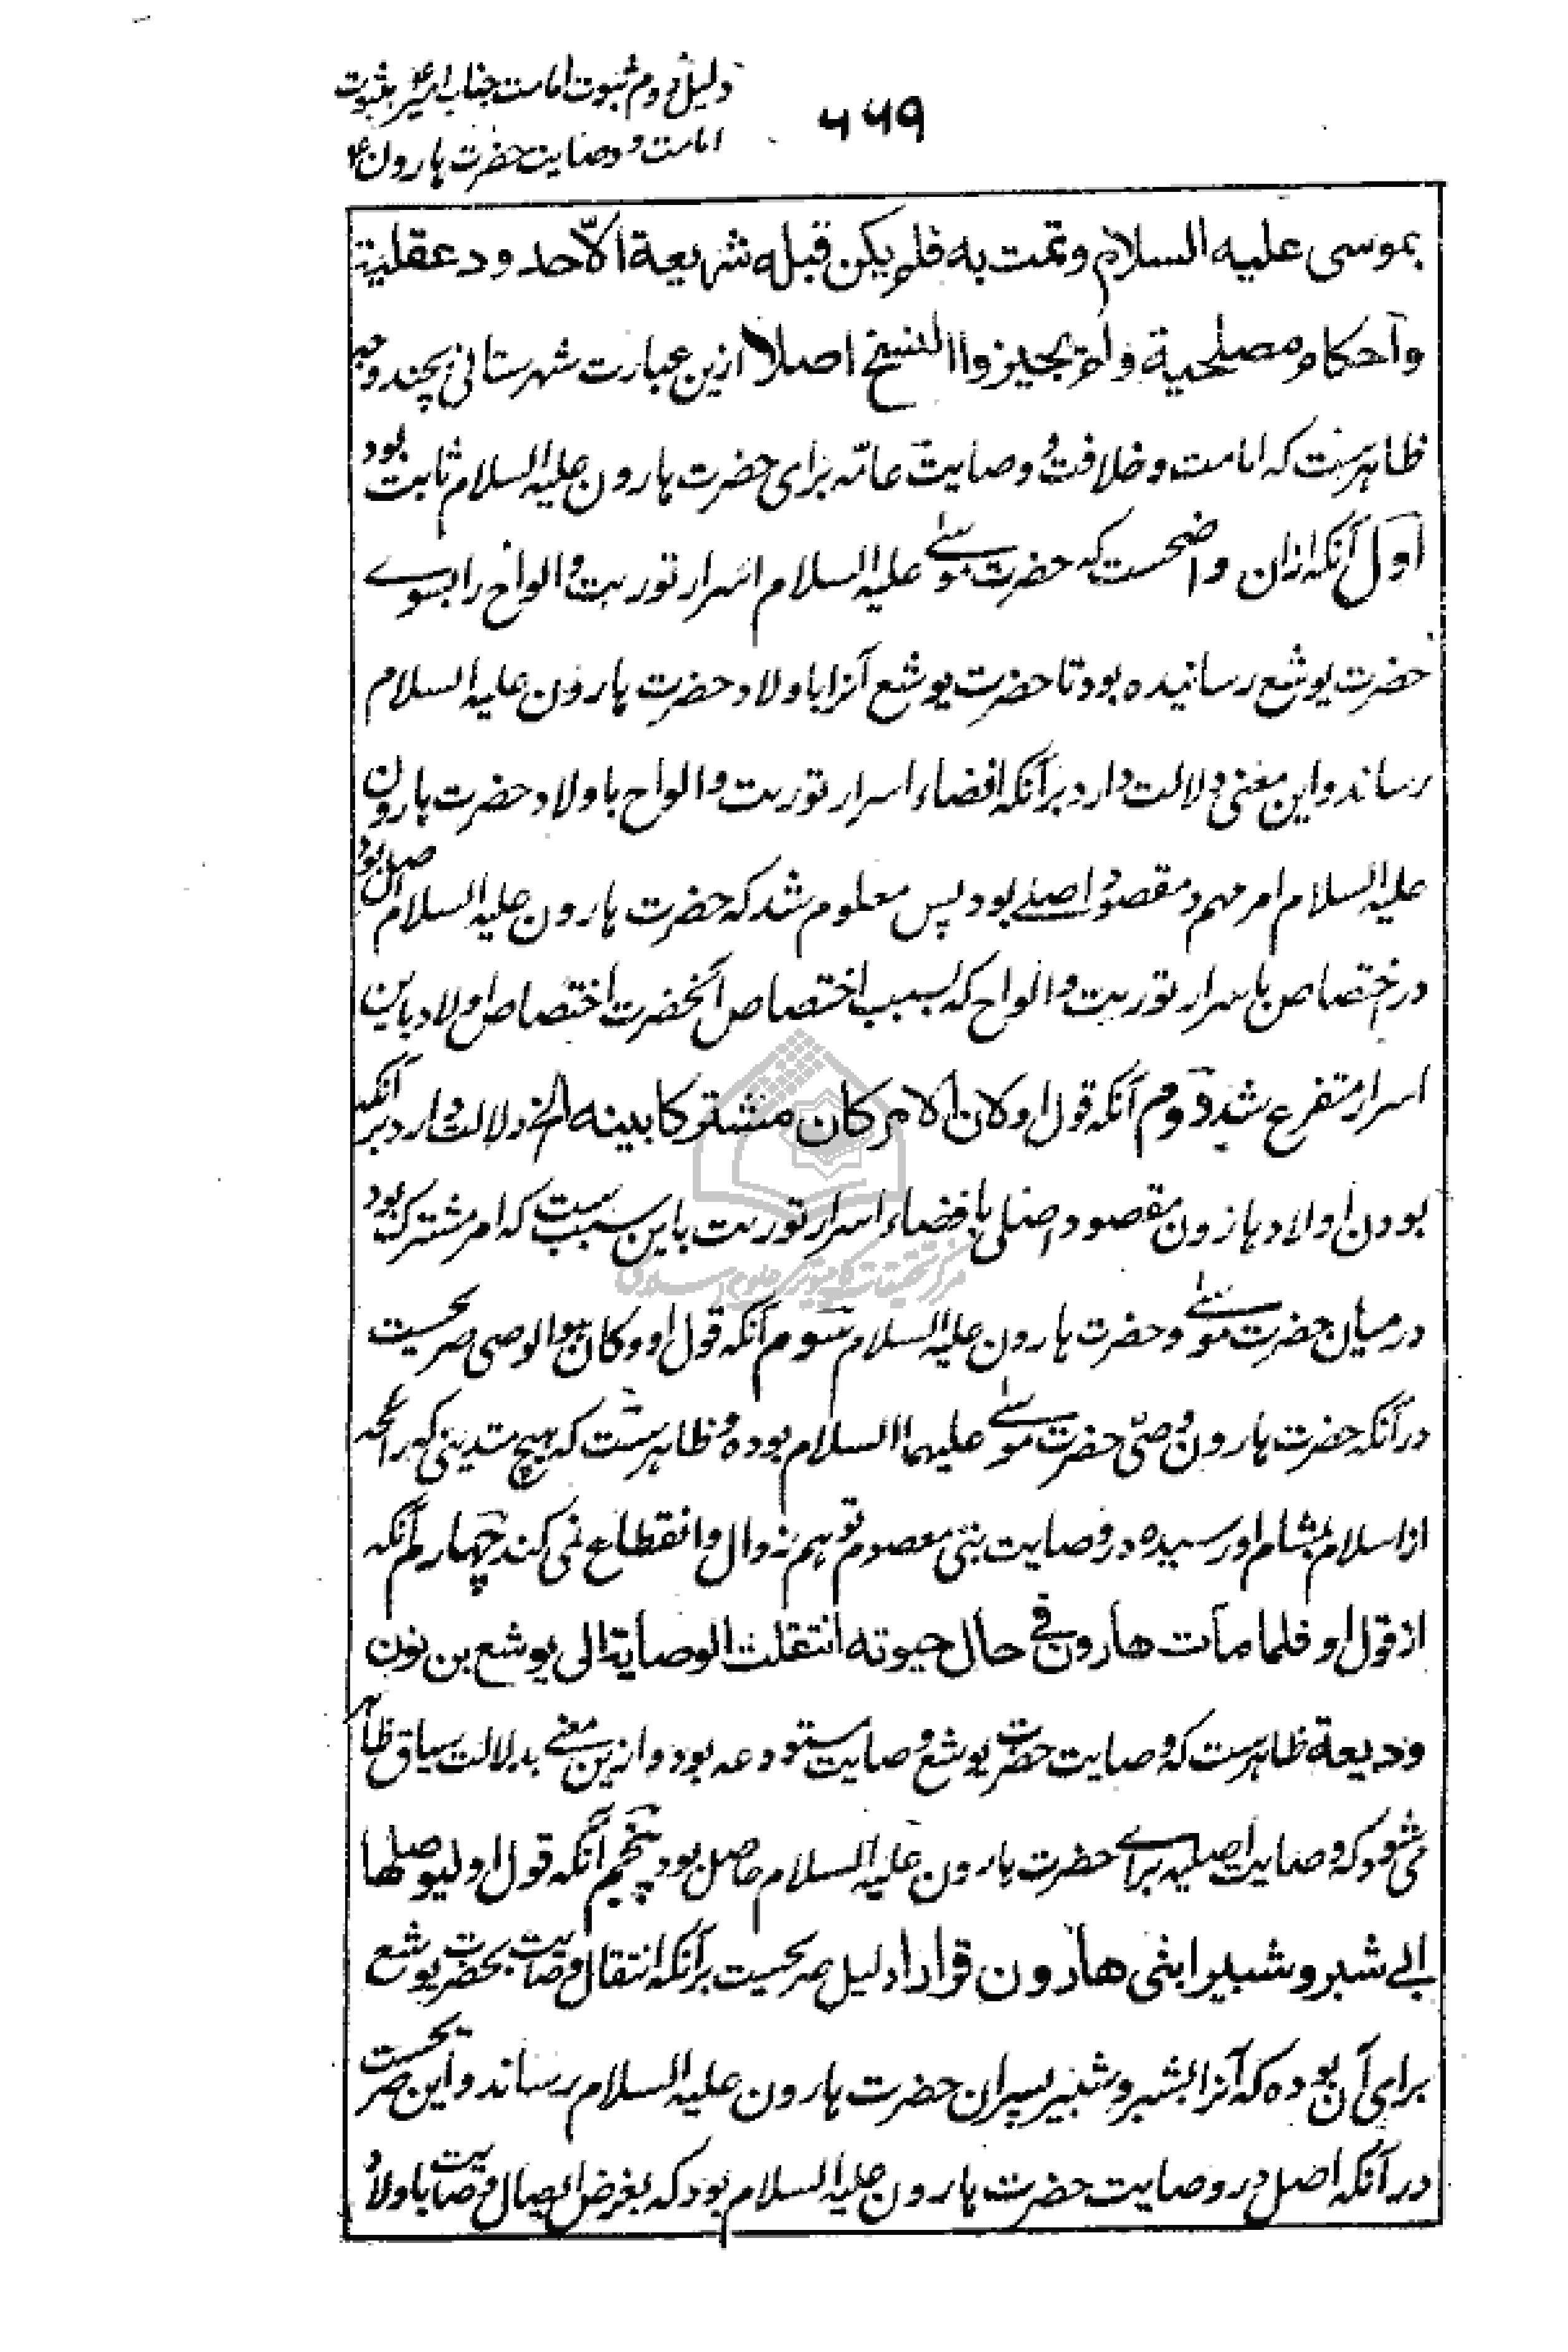 دلیل دوم ثبوت امامت جناب امیرؑ بثبوت
امامت و وصایت حضرت هارونؑ
۶۶۹
بموسی علیه السلام وتمت به فلم یکن قبله شریعة الّا حدود عقلیة
واحکام مصلحیة ولم یجیزوا النسخ اصلا ازین عبارت شهرستانی بچند وجه
ظاهرست که امامت و خلافت و وصایت عامّه برای حضرت هارون علیه السلام ثابت بود
اول آنکه ازان واضحست که حضرت موسی علیه السلام اسرار توریت و الواح را بسوے
حضرت یوشع رسانیده بود تا حضرت یوشع آنرا باولاد حضرت هارون علیه السلام
رساند و این معنی دلالت دارد بر آنکه افضاء اسرار توریت و الواح باولاد حضرت هارون
علیه السلام امر مهم و مقصود اصلے بود پس معلوم شد که حضرت هارون علیه السلام اصل بود
در اختصاص باسرار توریت و الواح که بسبب اختصاص آنحضرت اختصاص اولاد باین
اسرار متفرع شد دوم آنکه قول او لان الامر کان مشترکا بینه الخ دلالت دارد بر آنکه
بودن اولاد هارون مقصود اصلی بافضاء اسرار توریت باین سبب ست که امر مشترک بود
درمیان حضرت موسی و حضرت هارون علیه السلام سوم آنکه قول او وکان هو الوصی صریحست
در آنکه حضرت هارون وصیّ حضرت موسی علیهما السلام بوده و ظاهرست که هیچ متدینی که رائحه
از اسلام بمشام او رسیده در وصایت نبی معصوم توهم زوال و انقطاع نمی کند چهارم آنکه
از قول او فلما مات هارون فی حال حیوته انتقلت الوصایة الی یوشع بن نون
ودیعة ظاهرست که وصایت حضرت یوشع وصایت مستودعه بود و ازین معنے بدلالت سیاق ظاهر
می شود که وصایت اصلیه براے حضرت هارون علیه السلام حاصل بود پنجم آنکه قول او لیوصلها
الی شبر و شبیر ابنی هارون قرارا دلیل صریحست بر آنکه انتقال وصایت بحضرت یوشع
برای آن بوده که آنرا بشبر و شبیر پسران حضرت هارون علیه السلام رساند و این صریحست
در آنکه اصل در وصایت حضرت هارون علیه السلام بود که بغرض ایصال وصایت باولاد
مرکز تحقیقات کامپیوتری علوم اسلامی